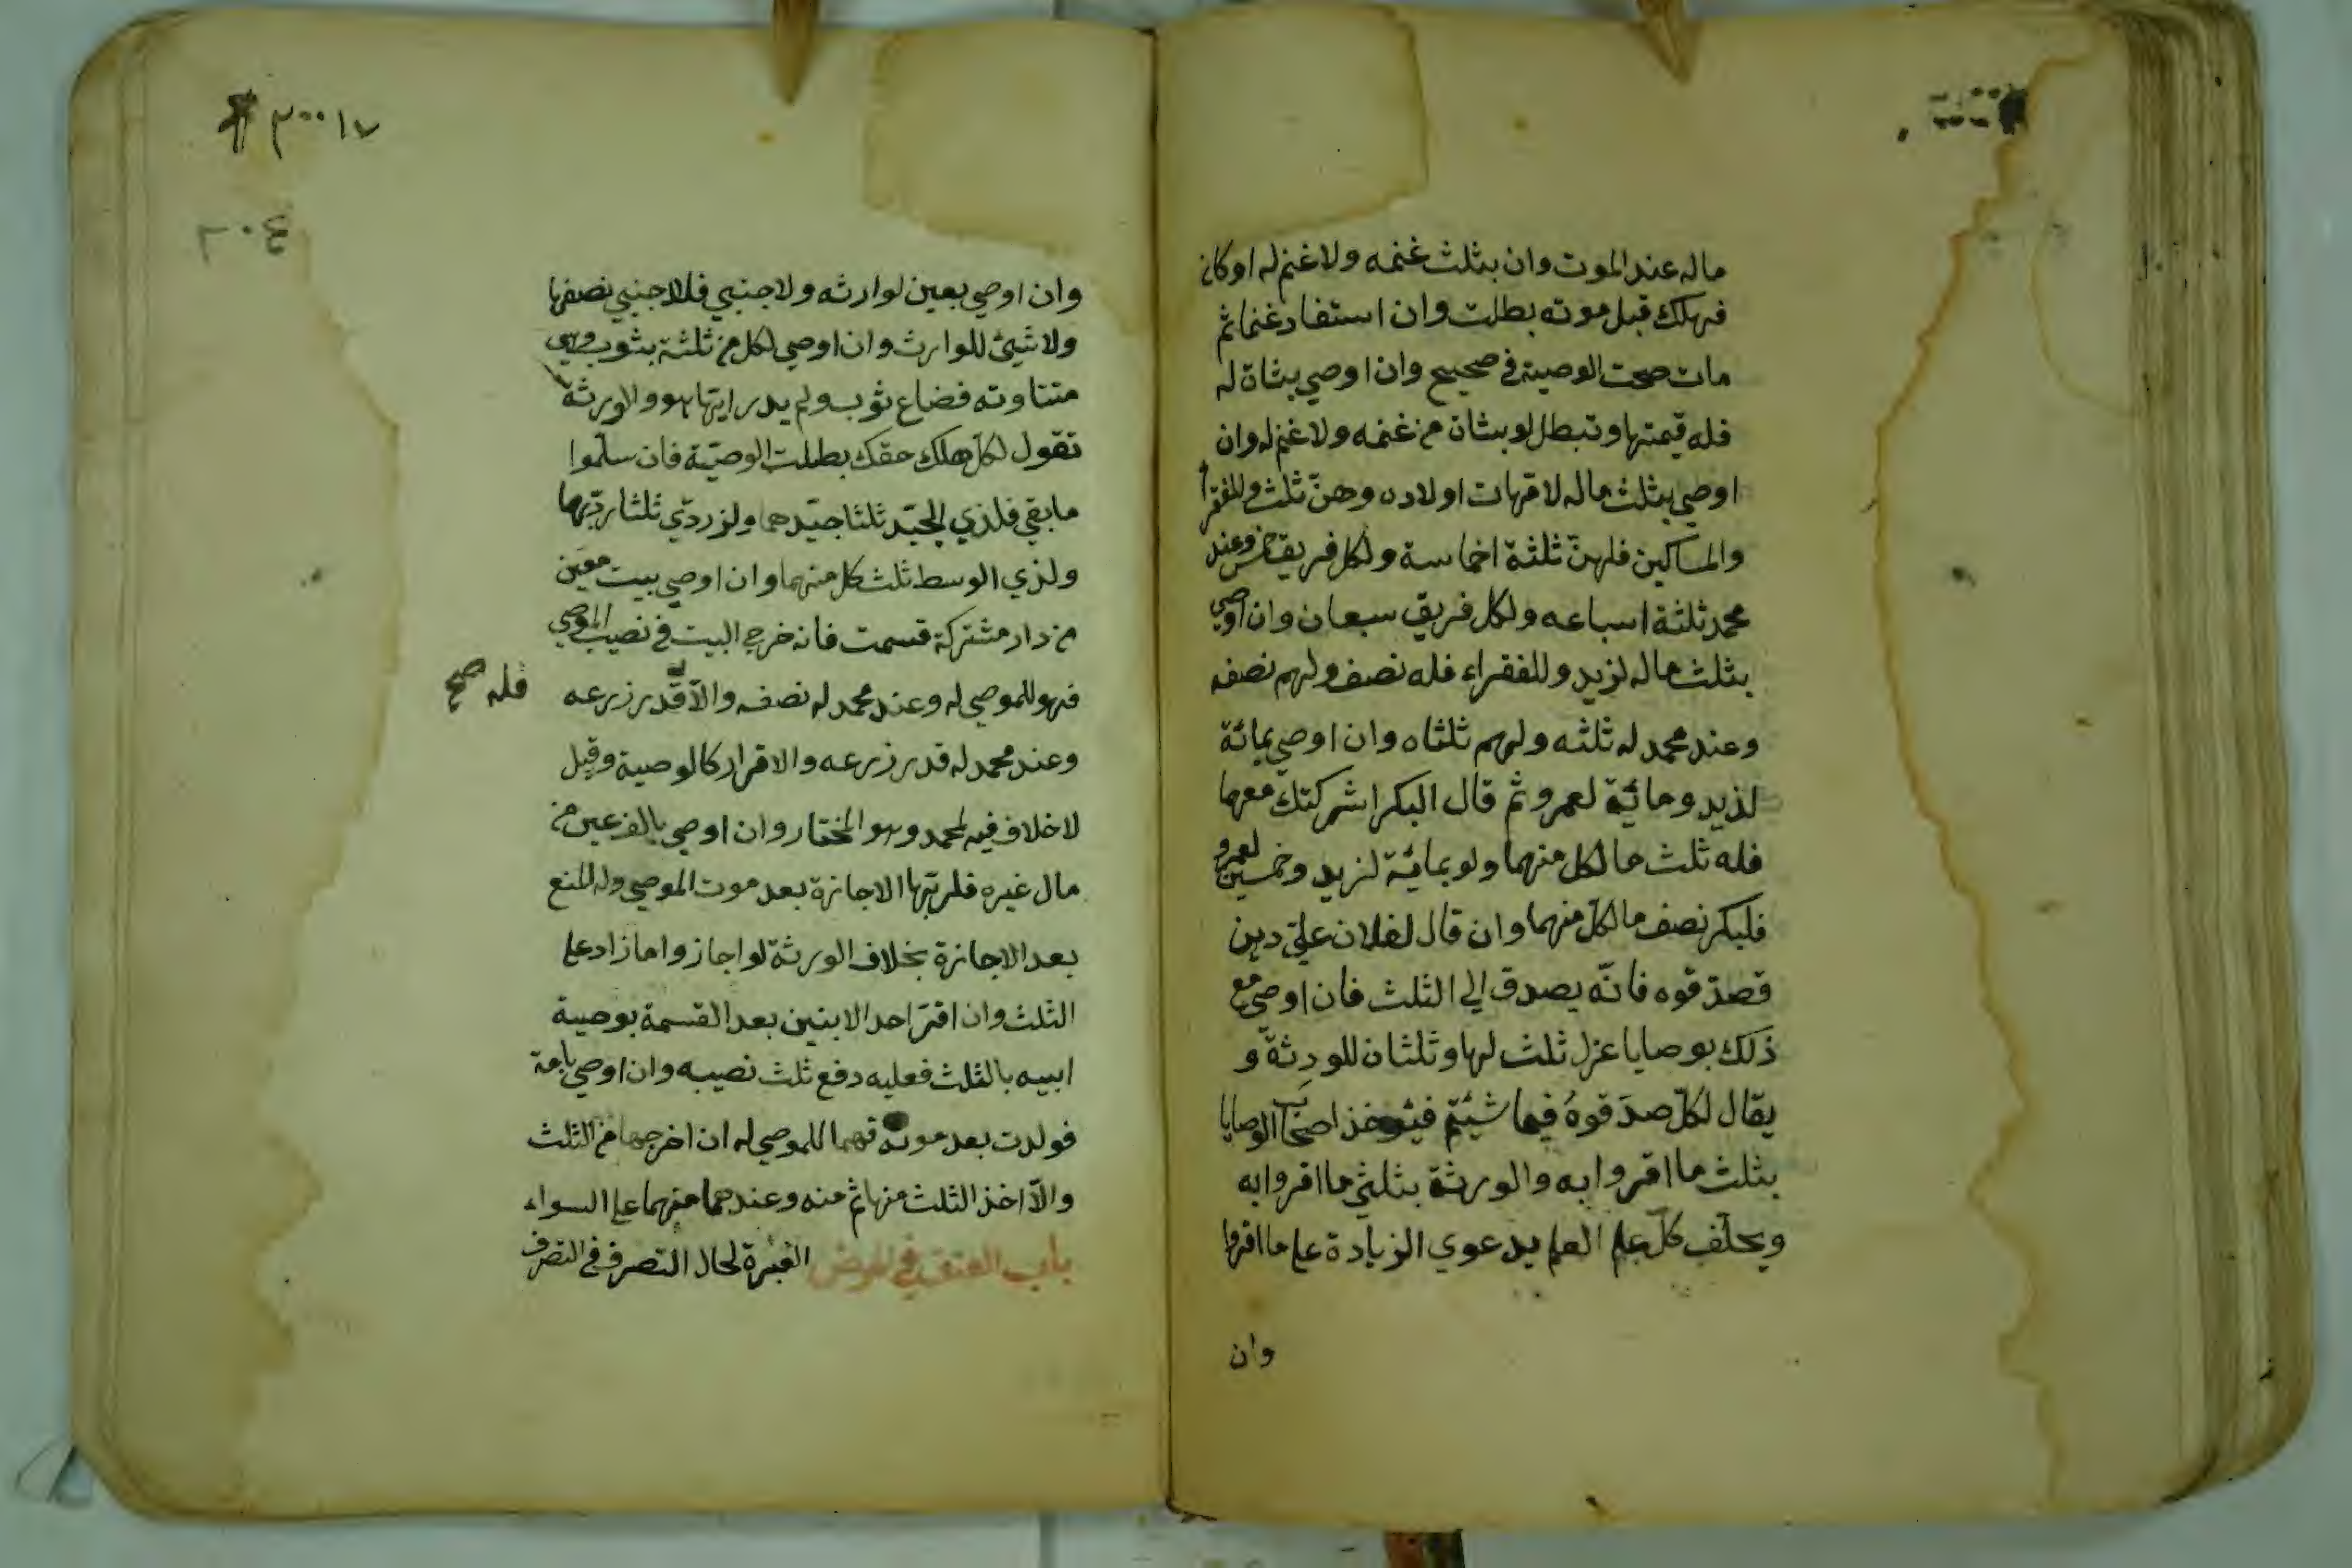 ماله عند الموت وان بثلث غنمه ولا غنم له او كان
فهلك قبل موته بطلت وان استفاد غنما ثم
مات صحت الوصية في صحيح وان اوصي بشاة له
فله قيمتها وتبطل لو بشاة من غنمه ولا غنم له وان
اوصي بثلث ماله لامهات اولاده وهنّ ثلث وللفقرا
والمساكين فلهنّ ثلثة اخماسة ولكل فريق خمس وعند
محمد ثلثة اسباعه ولكل فريق سبعان وان اوصي
بثلث ماله لزيد وللفقراء فله نصف ولهم نصفه
وعند محمد له ثلثه ولهم ثلثاه وان اوصي بمائة
لذيد ومائة لعمرو ثم قال البكر اشركتك معهما
فله ثلث ما لكل منهما ولو بمائة لزيد وخمسين لعمرو
فلبكر نصف ما لكل منهما وان قال لفلان عليّ دين
فصدّقوه فانّه يصدق الي الثلث فان اوصي مع
ذلك بوصايا عزل ثلث لها وثلثان للورثة و
يقال لكلّ صدقوهُ فيما شئتم فيؤخذ اصحاب الوصايا
بثلث ما اقروا به والورثة بثلثي ما اقروا به
ويحلف كلّ علي العلم بدعوي الزيادة علي ما اقروا
وان
٣٠٠١٧
٢٠٤
وان اوصي بعين لوارثه ولاجنبي فللاجنبي نصفها
ولا شيئ للوارث وان اوصي لكل من ثلثة بثوب وهي
متفاوته فضاع ثوب ولم يدر ايها هو والورثة
تقول لكل هلك حقك بطلت الوصيّة فان سلّموا
ما بقي فلذي الجيّد ثلثا جيّدهما ولذردّي ثلثا رديّهما
ولذي الوسط ثلث كل منهما وان اوصي ببيت معين
من دار مشتركة قسمت فانه خرج البيت في نصيب الموصي
فهو للموصي له وعند محمد له نصفه والاّ قدر زرعه
فله صح
وعند محمد له قدر زرعه والاقرار كالوصية وقيل
لا خلاف فيه لمحمد وهو المختار وان اوصي بالف عين من
مال غيره فلربّها الاجازة بعد موت الموصي وله المنع
بعد الاجازة بخلاف الورثة لو اجازوا ما زاد علي
الثلث وان اقرّ احد الابنين بعد القسمة بوصية
ابيه بالثلث فعليه دفع ثلث نصيبه وان اوصي بامة
فولدت بعد موته فهما للموصي له ان اخرجها من الثلث
والاّ اخذ الثلث منها ثم منه وعندهما منهما علي السواء
باب العتق في المرض العبرة لحال التصرف في التصرف